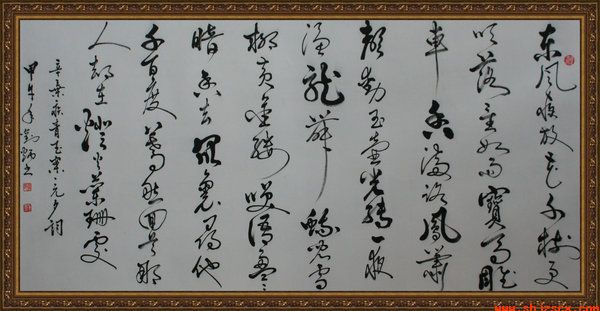 东风夜放花千树更
吹落星如雨寶马雕
車香满路鳳箫
聲動玉壶光轉一夜
鱼龍舞蛾兒雪
柳黄金缕笑语盈盈
暗香去眾裏寻他
千百度蓦然回首那
人却在燈火阑珊处
辛弃疾青玉案元夕词
甲午年